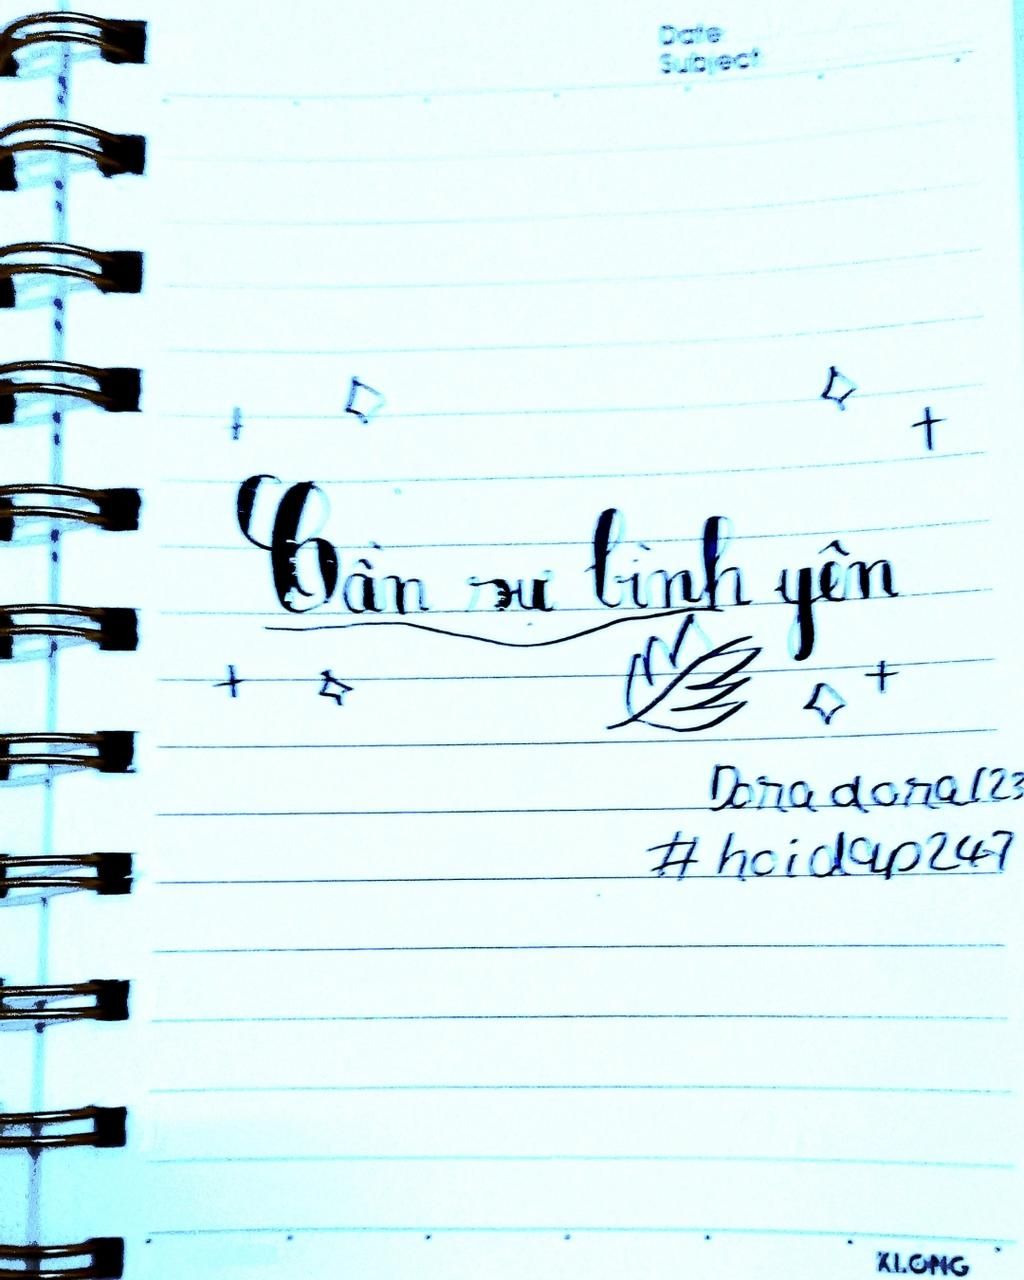 Date
Subject
Cần sự bình yên
Doradora123
#hoidap247
KLONG